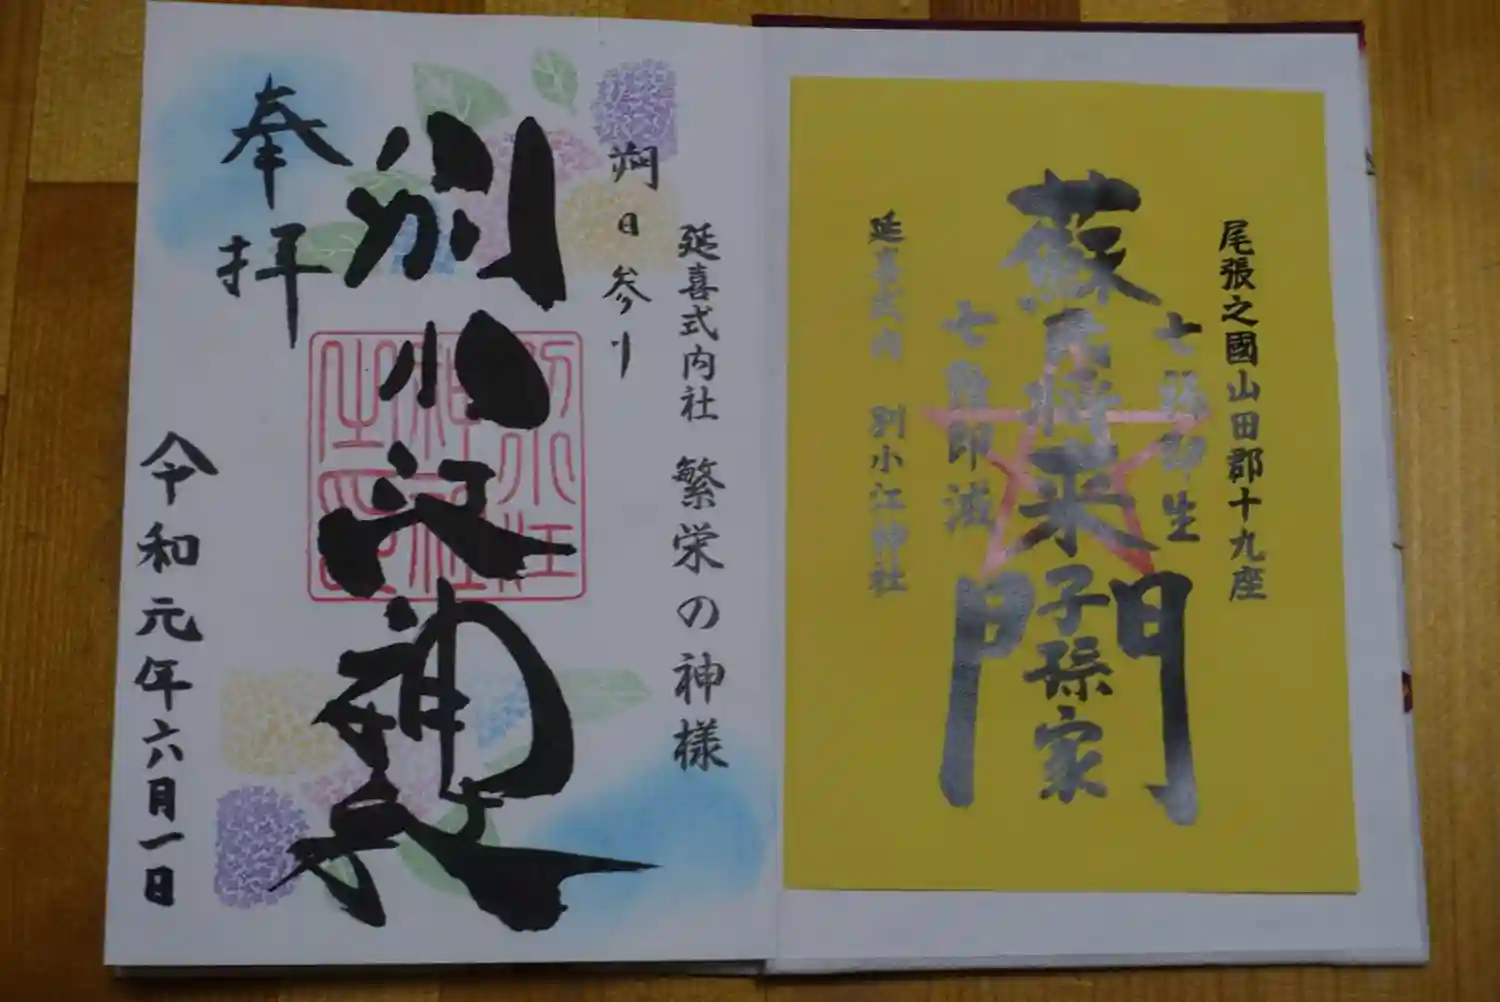 尾張之國山田郡十九座
七難即生
蘇民将来子孫家門
七難即滅
延喜式内 別小江神社
延喜式内社 繁栄の神様
朔日参り
別小江神社
奉拝
令和元年六月一日